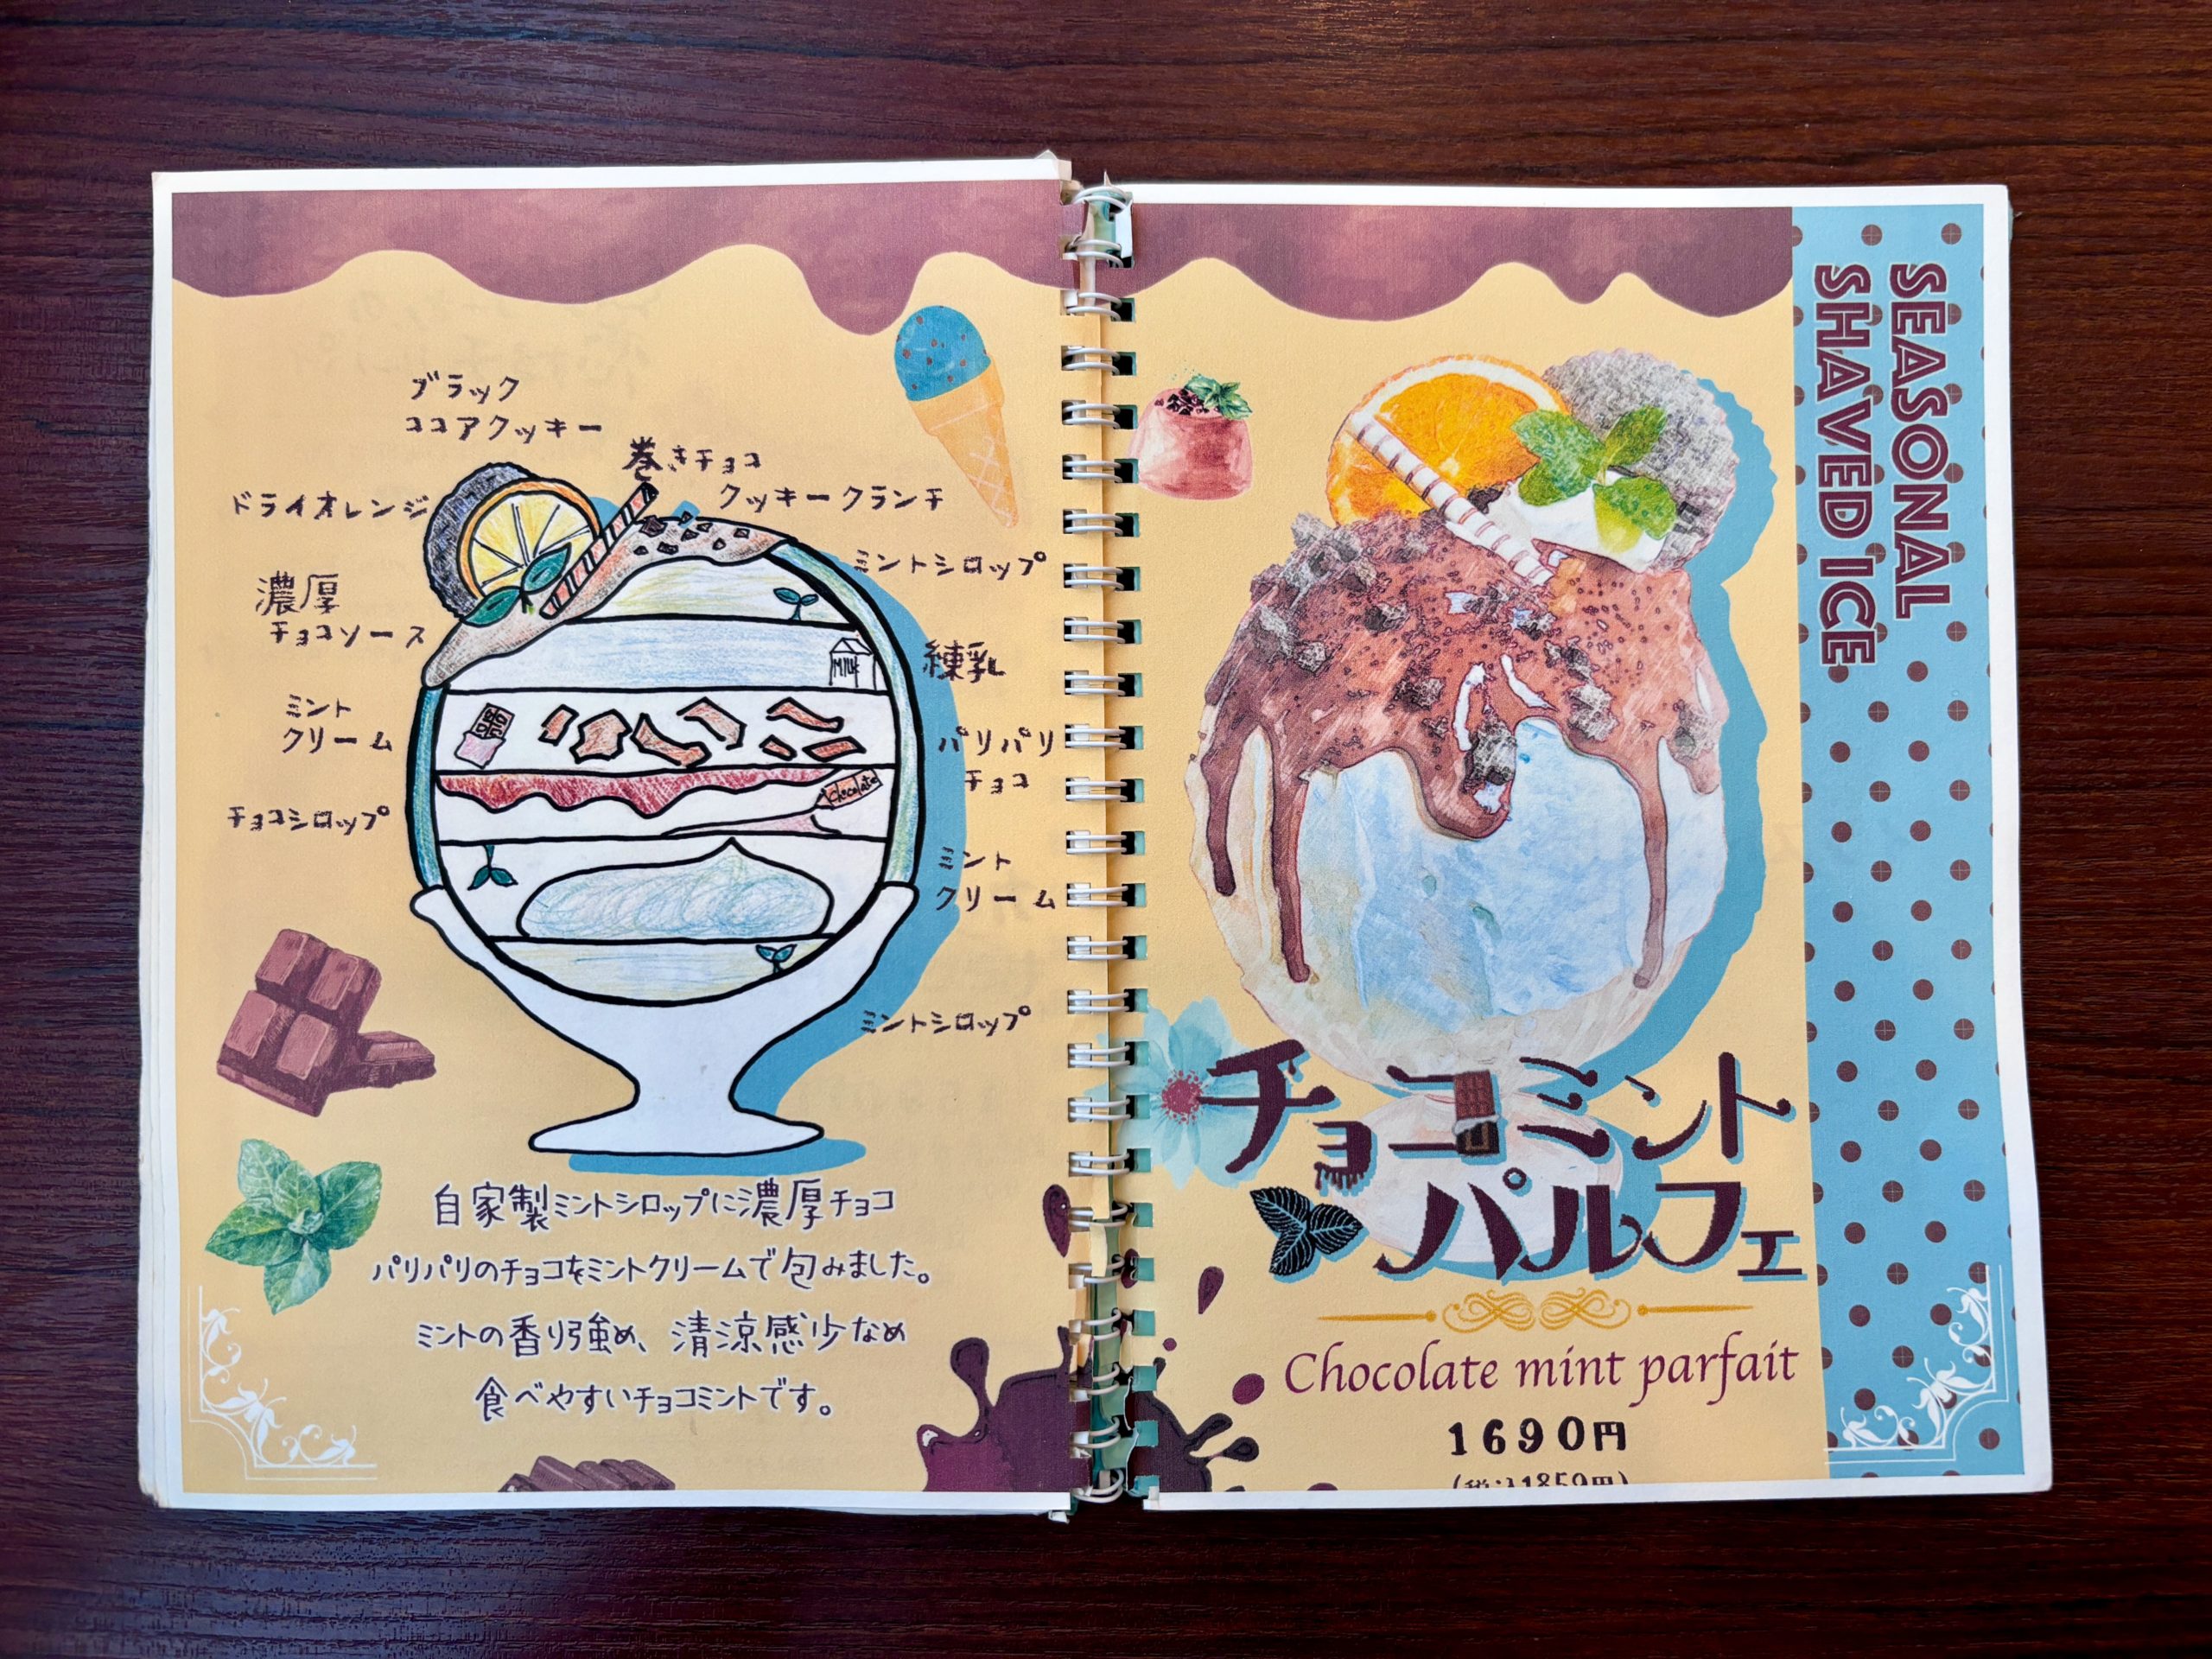 ブラック
ココアクッキー
巻きチョコ
クッキークランチ
ドライオレンジ
ミントシロップ
濃厚
チョコソース
練乳
MILK
ミント
クリーム
パリパリ
チョコ
chocolate
チョコシロップ
ミント
クリーム
ミントシロップ
自家製ミントシロップに濃厚チョコ
パリパリのチョコをミントクリームで包みました。
ミントの香り強め、清涼感少なめ
食べやすいチョコミントです。
SEASONAL
SHAVED ICE
チョコミント
パルフェ
Chocolate mint parfait
1690円
(税込1859円)